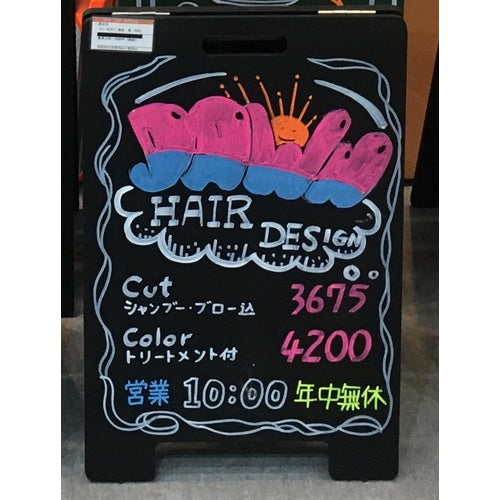 HAIR
DESIGN
Cut
シャンプー・ブロー込
3675
Color
トリートメント付
4200
営業 10:00 年中無休